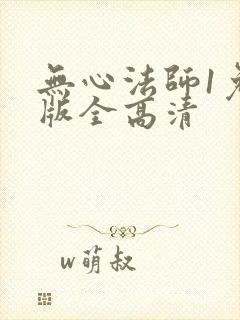 無心法師1
版全高清
w萌叔